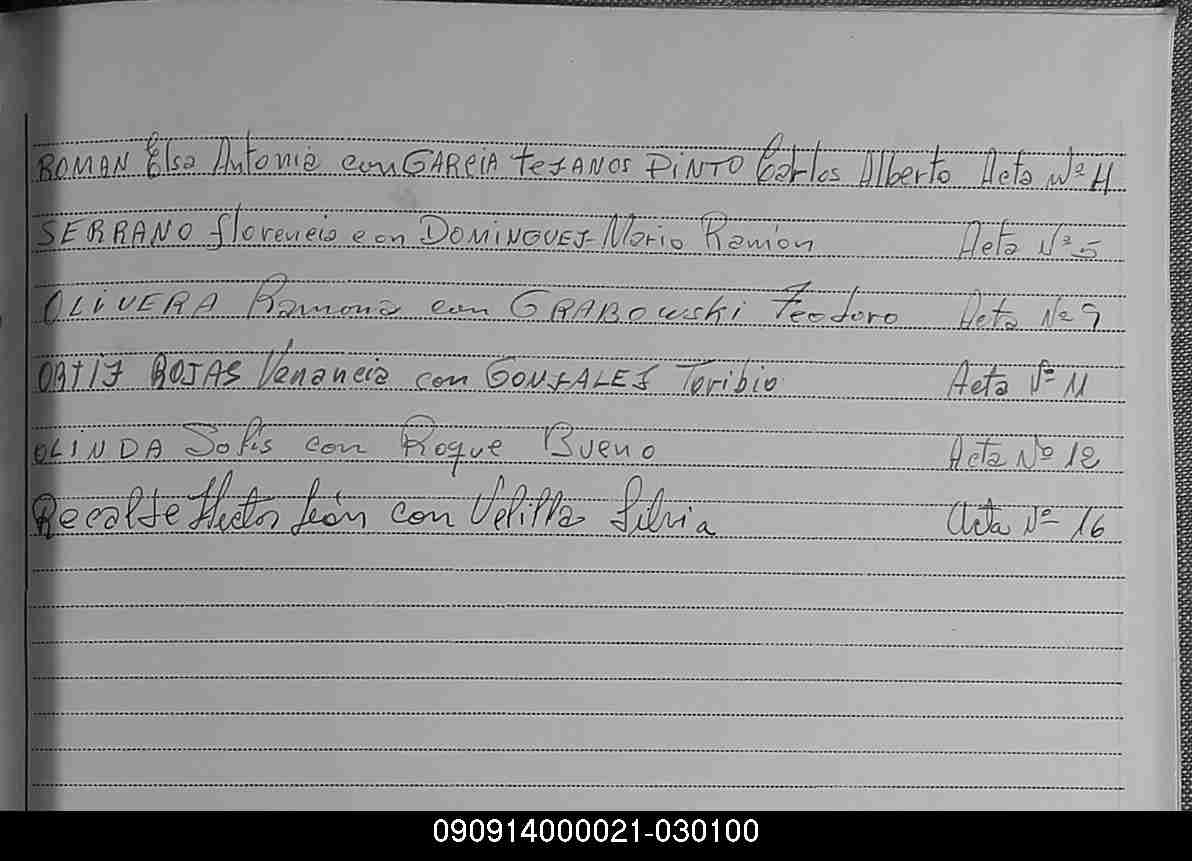 ROMAN Elsa Antonia con GARCIA teJANOS PINTO Carlos Alberto Acta Nº 4
SERRANO florencia con DOMINGUEJ Mario Ramón Acta Nº 5
OLIVERA Ramona con GRABOwski Teodoro Acta Nº 9
ORtiJ ROJAS Venancia con GONJALEJ Toribio Acta Nº 11
OLINDA Solis con Roque Bueno Acta Nº 12
Recalde Hector León con Velilla Silvia Acta Nº 16
090914000021-030100